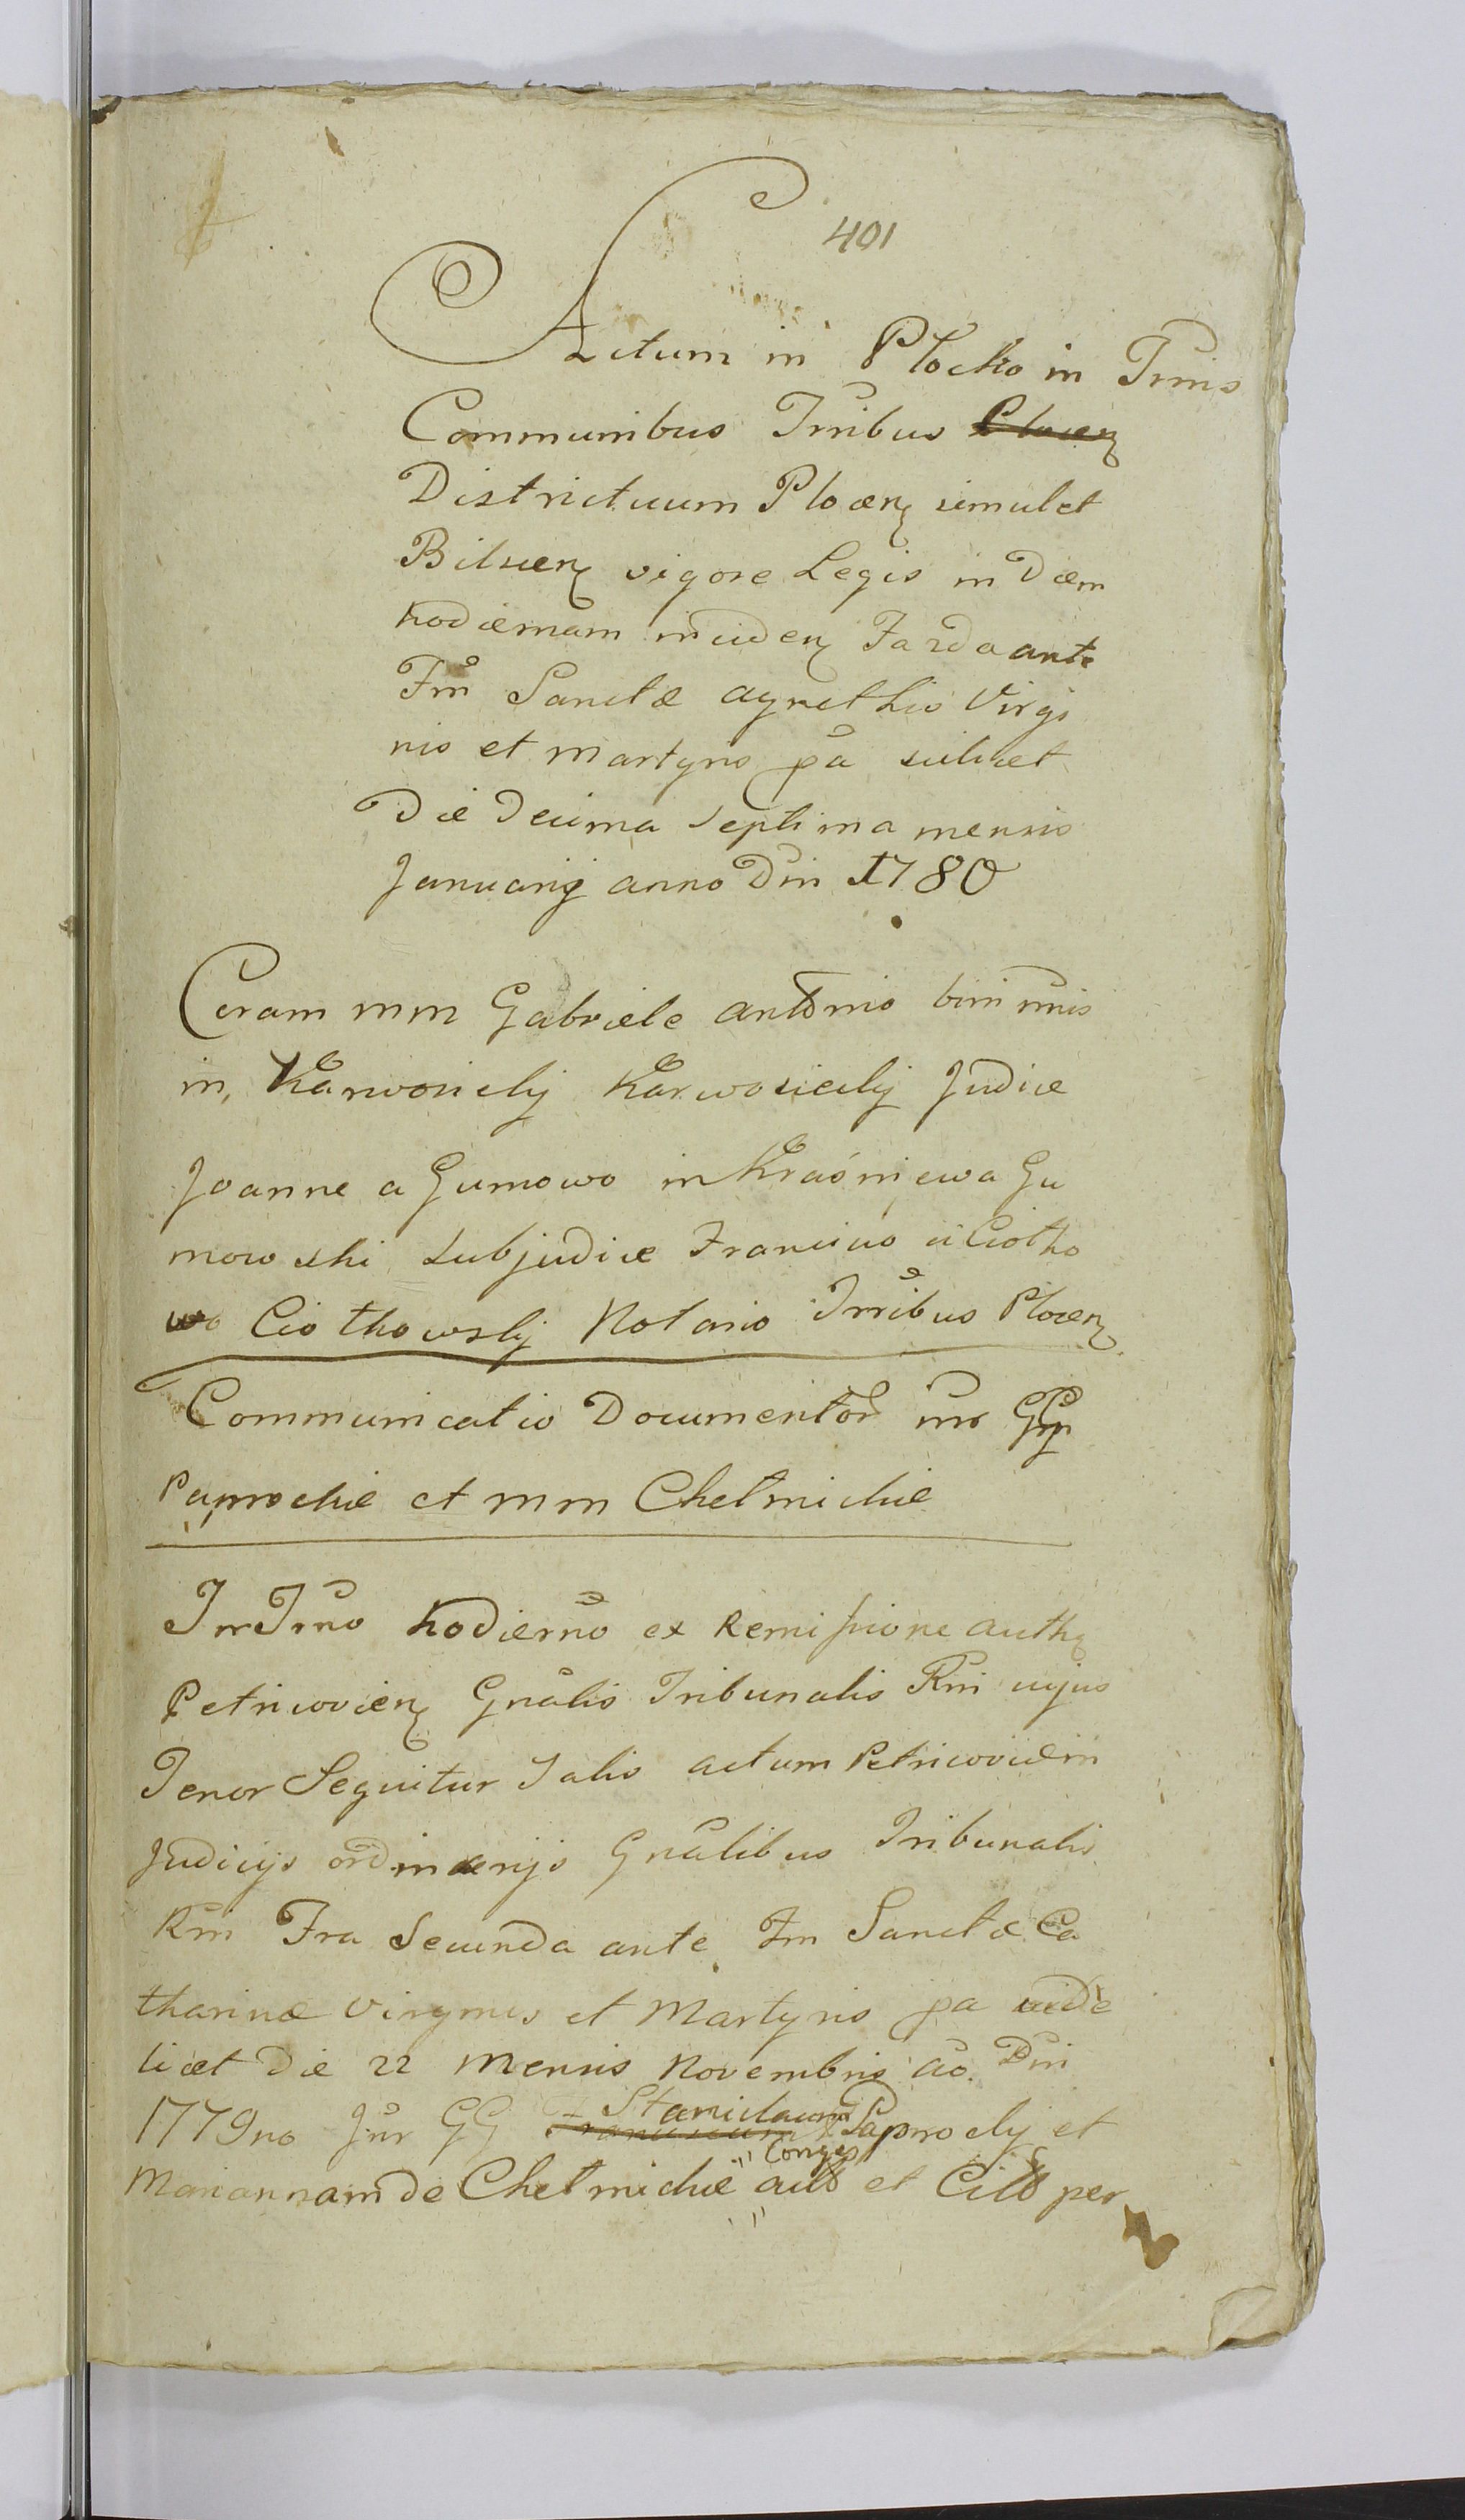 401
Actum in Płocko in Trnis
Communibus Trribus Plocen
Districtuum Plocen simulet
Bilscen vigore Legis in diem
hodiernam inciden Farda ante
Fm Sanctæ agnethis Virgi
nis et martyris pa scilicet
Die Decima Septima mensis
Januarij anno Dni 1780
Coram mm Gabriele antonio
in, Karwosieky Karwosiecky Judice
Joanne a Gumowo in Kraśniewa Gu
mowski Subjudice Francisco a Ciotko
wo Ciotkowsky Notario Trribus Plocen
Communicatio Documentor inr GG
Paprockie et mm Chełmickie
In Trno hodierno ex Remissione auth
Petricovien Gnalis Tribunalis Rni cujus
Tenor Sequitur Talis actum Petricoviæ in
Judicijs ordinarijs Gnalibus Tribunalis
Rni Fra Secunda ante Fm Sanctæ Ca
tharinæ Virginis et Martyris pa vide
licet Die 22 Mensis Novembris ao Dni
1779no Jnr GG Franciscum Stanislaum Paprocky et
Mariannam de Chełmickie Conges actt et Citt per